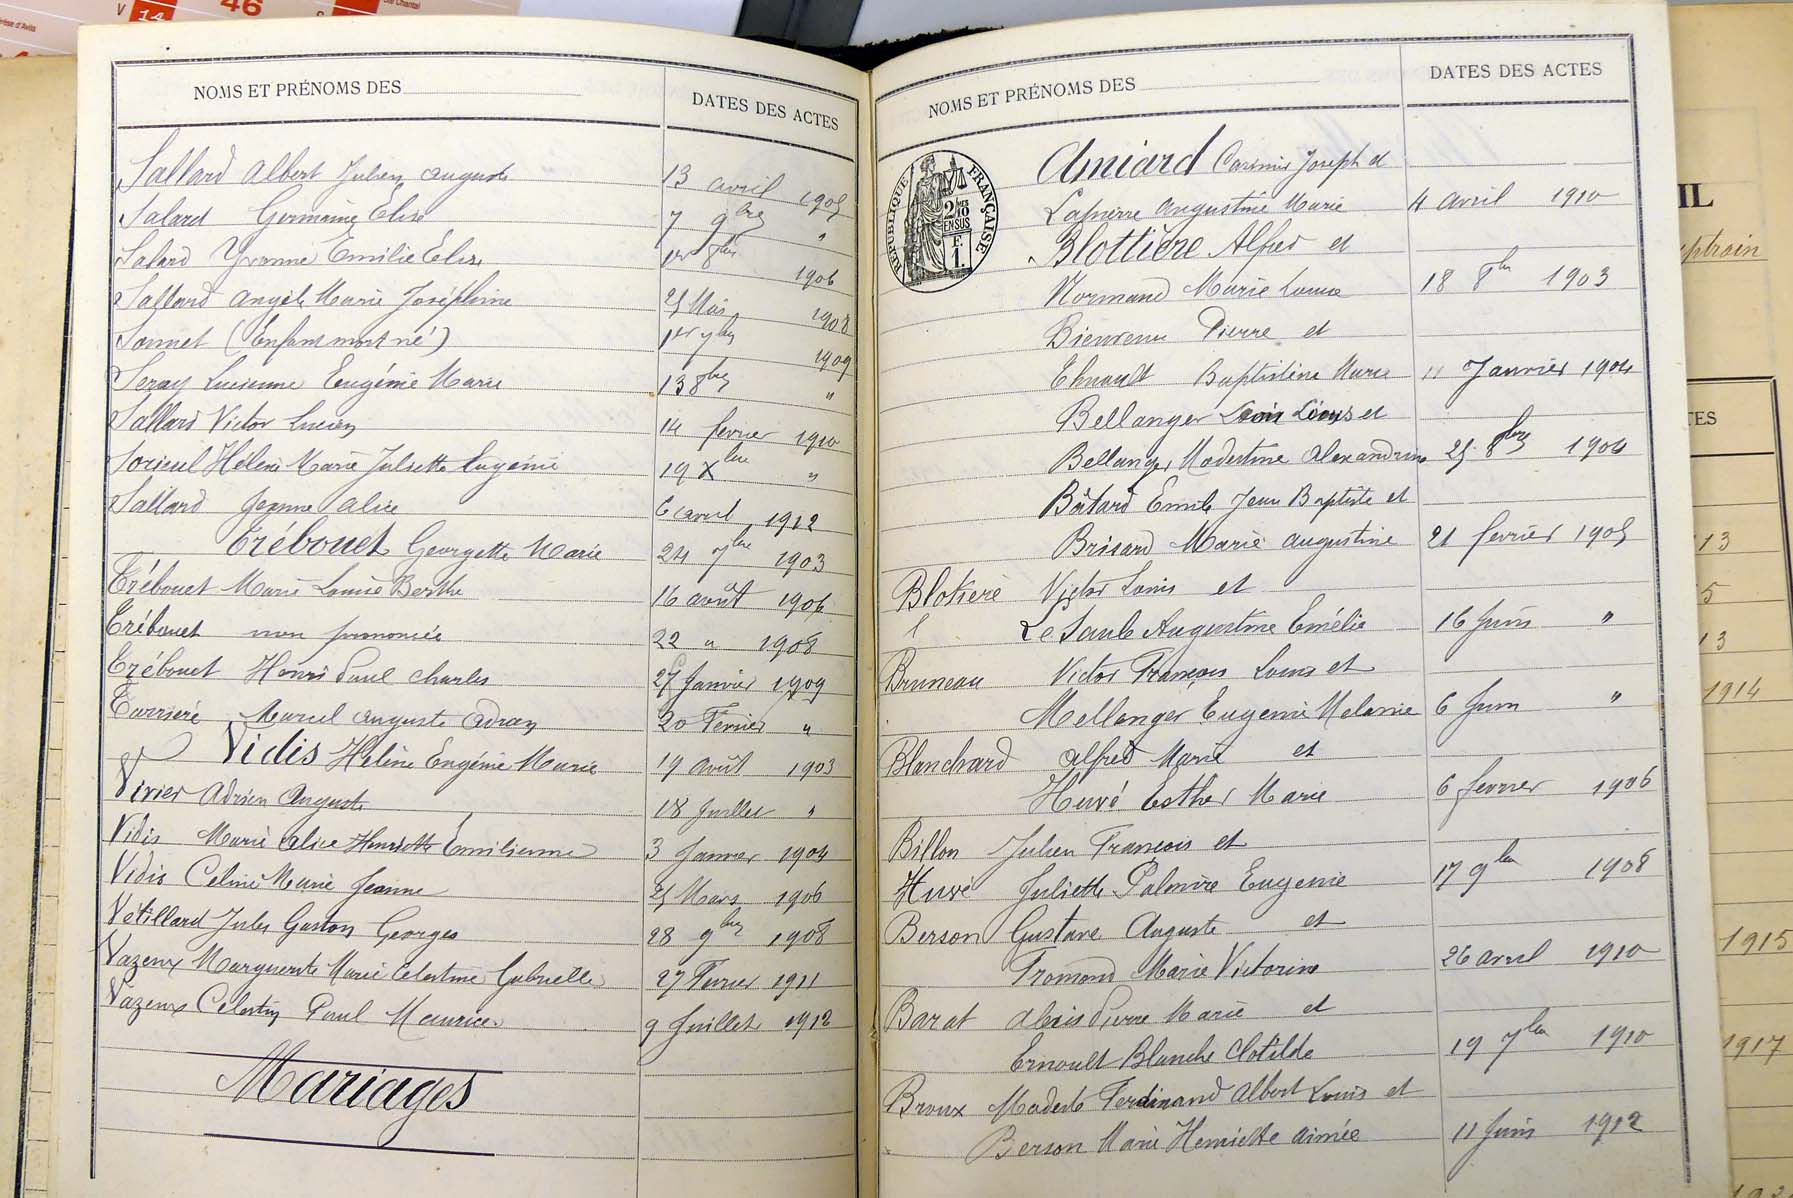 V 14
46
NOMS ET PRÉNOMS DES
DATES DES ACTES
Sallard Albert Julien Auguste 13 avril 1905
Salard Germaine Elise 7 9bre "
Salard Yvonne Emilie Elise 1er 8bre 1906
Sallard Angèle Marie Joséphine 25 Mai 1908
Sonnet (Enfant mort né) 1er 1909
Seray Lucienne Eugénie Marie 13 8bre "
Sallard Victor Lucien 14 fevrier 1910
Sorieul Hélène Marie Juliette Eugénie 19 Xbre "
Sallard Jeanne Alice 6 avril 1912
Trébouet Georgette Marie 24 7bre 1903
Trébouet Marie Louise Berthe 16 août 1904
Trébouet non prénomée 22 " 1908
Trébouet Henri Paul Charles 27 Janvier 1909
Marcel Auguste 20 Fevrier "
Vidis Hélène Eugénie Marie 19 août 1903
Vivier Adrien Auguste 18 Juillet "
Vidis Marie Alice Henriette Émilienne 3 Janvier 1904
Vidis Celine Marie Jeanne 25 Mars 1906
Vétillard Jules Gaston Georges 28 9bre 1908
Vazeux Marguerite Marie Celestine Gabrielle 27 Fevrier 1911
Vazeux Celestin Paul Maurice 9 Juillet 1912
Mariages
NOMS ET PRÉNOMS DES
DATES DES ACTES
RÉPUBLIQUE FRANÇAISE
2/10 EN SUS
F. 1.
Amiard Casimir Joseph et
Lapierre Augustine Marie 4 avril 1910
Blottière Alfred et
Normand Marie Louise 18 8bre 1903
Bienvenu Pierre et
Baptistine Marie 11 Janvier 1904
Bellanger Louis et
Bellanger Modestine Alexandrine 25 8bre 1904
Bâtard Emile Jean Baptiste et
Brisard Marie Augustine 21 fevrier 1905
Blotière Victor Louis et
Le Saule Augustine Emélie 16 Juin "
Bruneau Victor François Louis et
Mellenger Eugenie Melanie 6 Juin "
Blanchard Alfred Marie et
Huvé Esther Marie 6 fevrier 1906
Billon Julien Francois et
Huvé Juliette Palmire Eugenie 17 9bre 1908
Berson Gustave Auguste et
Fromond Marie Victorine 26 avril 1910
Barat Alexis Pierre Marie et
Ernoult Blanche Clotilde 19 7bre 1910
Broux Modeste Ferdinand Albert Louis et
Berson Marie Henriette Aimée 11 Juin 1912
IL
TES
13
5
13
1914
1915
1917